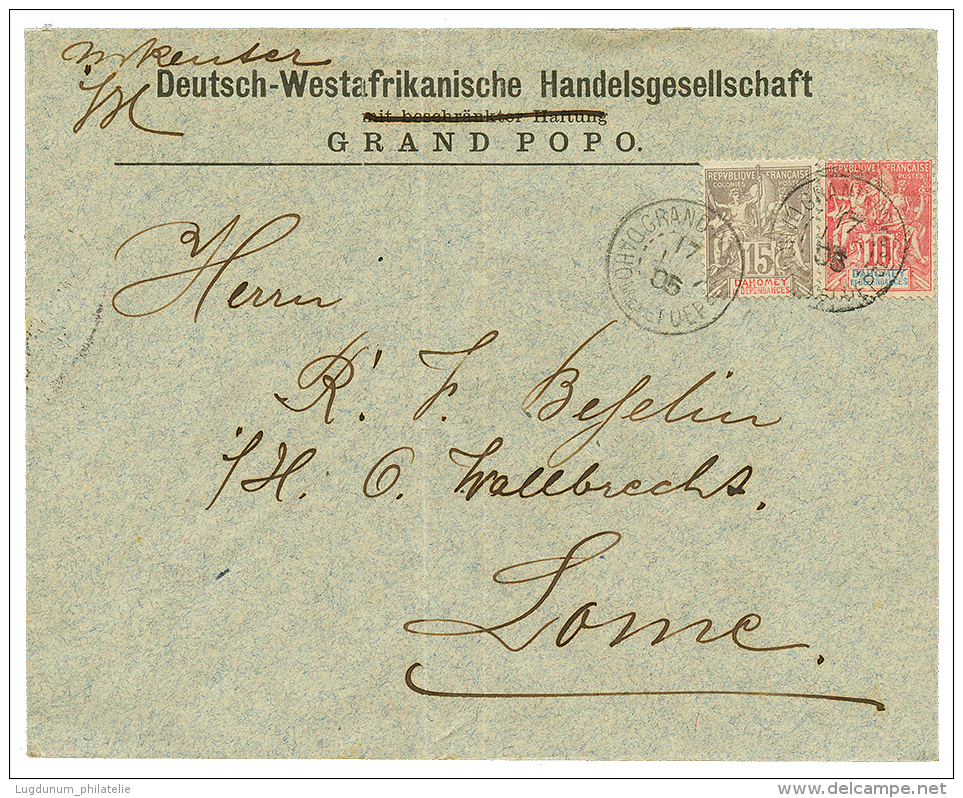 Deutsch-Westafrikanische Handelsgesellschaft
mit beschränkter Haftung
GRAND POPO.
REPVBLIQVE FRANÇAISE
COLONIES POSTES
15
DAHOMEY
ET DÉPENDANCES
REPVBLIQVE FRANÇAISE
POSTES
10
DAHOMEY
ET DÉPENDANCES
GRAND
17
05
GRAND
17
05
Herrn
R. F. Beselin
i/H. C. Wallbrecht.
Lome.
Lugdunum_philatelie
www.delcampe.net